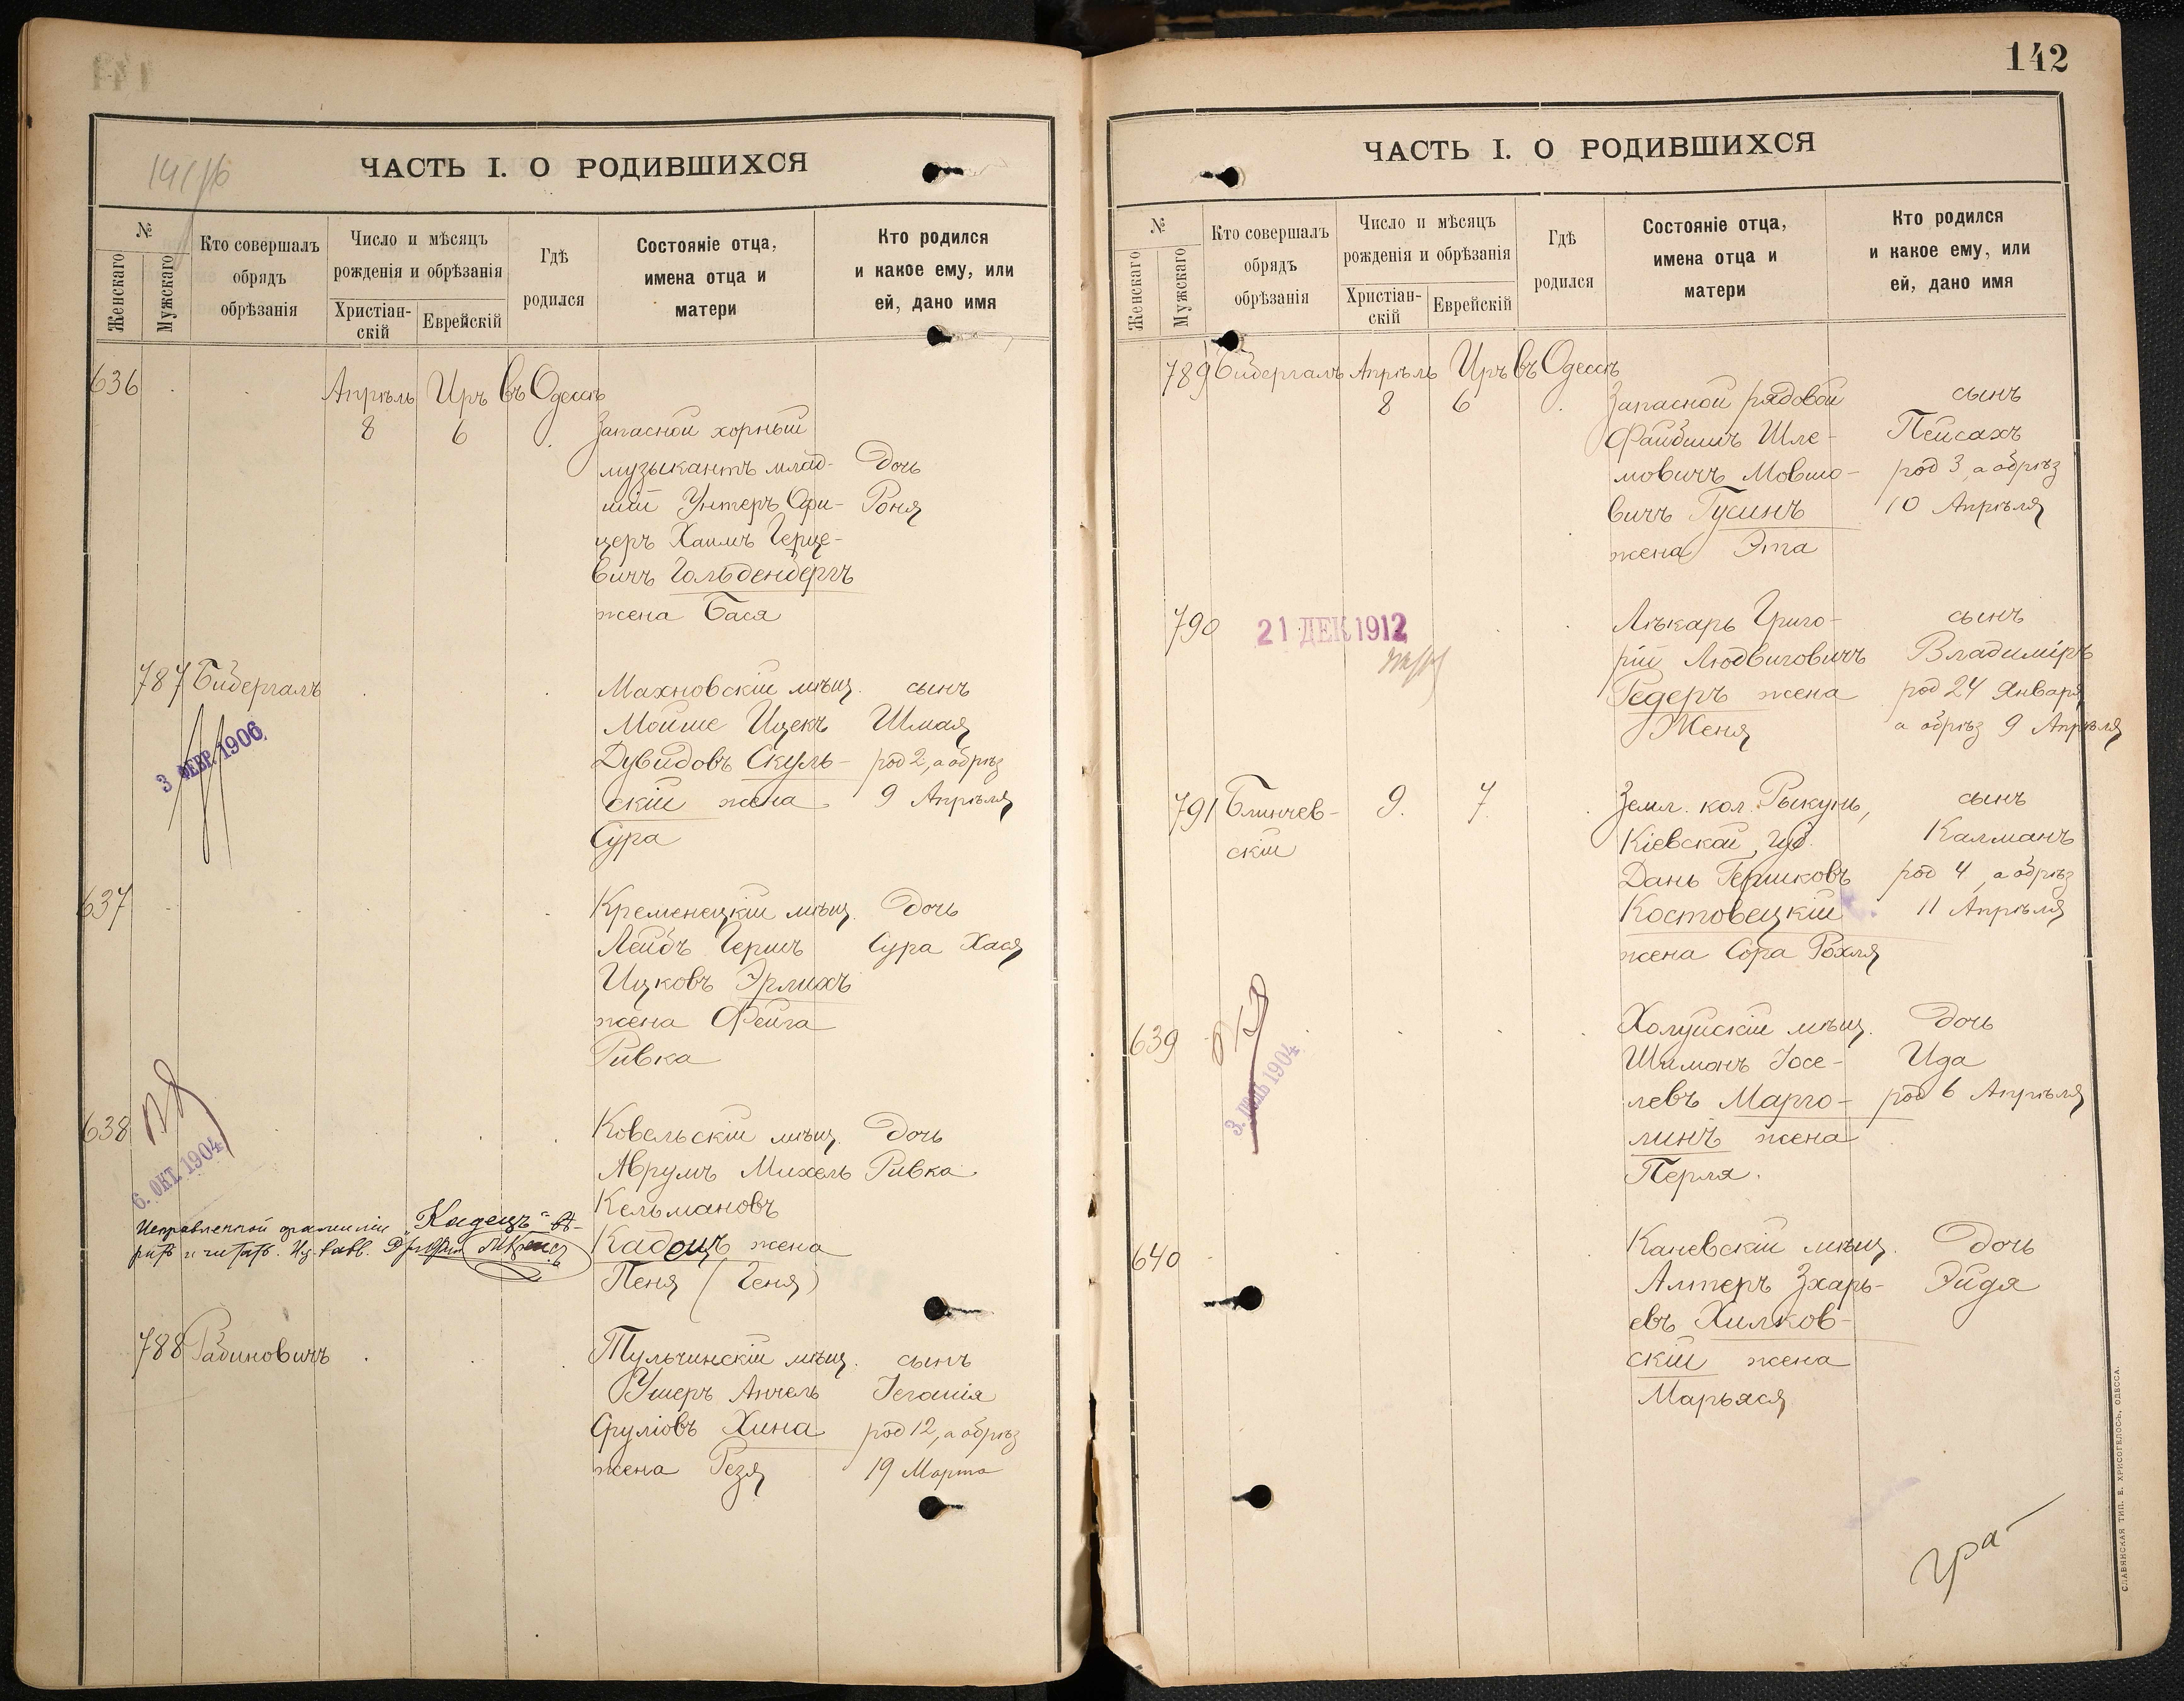 141
14 1/76
ЧАСТЬ I. О РОДИВШИХСЯ
№
Женскаго
Мужскаго
Кто совершалъ
обрядъ
обрѣзанія
Число и мѣсяцъ
рожденія и обрѣзанія
Христіан-
скій
Еврейскій
Гдѣ
родился
Состояніе отца,
имена отца и
матери
Кто родился
и какое ему, или
ей, дано имя
636
Апрѣль Иръ въ Одессѣ
8 6
Запасной хорный
музыкантъ млад-
шій Унтеръ Офи-
церъ Хаимъ Герце-
вичъ Гольденбергъ
жена Бася
Дочь
Роня
787 Бидергалъ
3 ФЕВР. 1906
Махновскій мѣщ.
Мойше Ицекъ
Дувидовъ Скуль-
скій жена
Сура
сынъ
Шмая
род 2, а обрѣз
9 Апрѣля
637
Кременецкій мѣщ.
Лейбъ Гершъ
Ицковъ Эрлихъ
жена Фейга
Ривка
Дочь
Сура Хася
638
6. ОКТ. 1904
Исправленной фамиліи „Кадецъ“ вѣ-
рить и читать.
Ковельскій мѣщ.
Аврумъ Михель
Кельмановъ
Кадецъ жена
Пеня (Геня)
Дочь
Ривка
788 Рабиновичъ
Тульчинскій мѣщ.
Ушеръ Анчель
Сруліовъ Хина
жена Резя
сынъ
Іегошія
род 12, а обрѣз
19 Марта
142
ЧАСТЬ I. О РОДИВШИХСЯ
№
Женскаго
Мужскаго
Кто совершалъ
обрядъ
обрѣзанія
Число и мѣсяцъ
рожденія и обрѣзанія
Христіан-
скій
Еврейскій
Гдѣ
родился
Состояніе отца,
имена отца и
матери
Кто родился
и какое ему, или
ей, дано имя
789 Бидергалъ Апрѣль Иръ въ Одессѣ
8 6
Запасной рядовой
Файбишъ Шле-
мовичъ Мовшо-
вичъ Гусинъ
жена Эта
сынъ
Пейсахъ
род 3, а обрѣз
10 Апрѣля
790
21 ДЕК 1912
Лѣкарь Григо-
рій Людвиговичъ
Редеръ жена
Женя
сынъ
Владиміръ
род 24 Января
а обрѣз 9 Апрѣля
791 Блинчев-
скій
9. 7
Земл. кол. Рыкунь,
Кіевской губ.
Дань Гершковъ
Костовецкій
жена Сора Рохля
сынъ
Калманъ
род 4, а обрѣз
11 Апрѣля
639
Холуйскій мѣщ.
Шимонъ Іосе-
левъ Марго-
линъ жена
Перля.
Дочь
Ида
род 6 Апрѣля
640
Каневскій мѣщ.
Алтеръ Зхарь-
евъ Хилков-
скій жена
Марьяся
Дочь
Эйдя
СЛАВЯНСКАЯ ТИП. Е. ХРИСОГЕЛОСЪ, ОДЕССА.